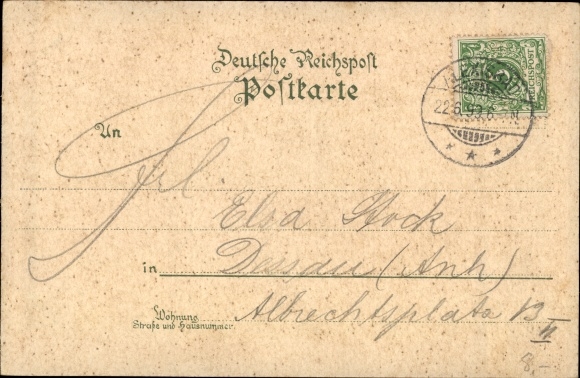 Deutsche Reichspost
Postkarte
REICHSPOST
22.6.99.
An
Frl
Elsa Stock
in Dessau (Anh)
Wohnung
Straße und Hausnummer
Albrechtsplatz 13
II
8,-